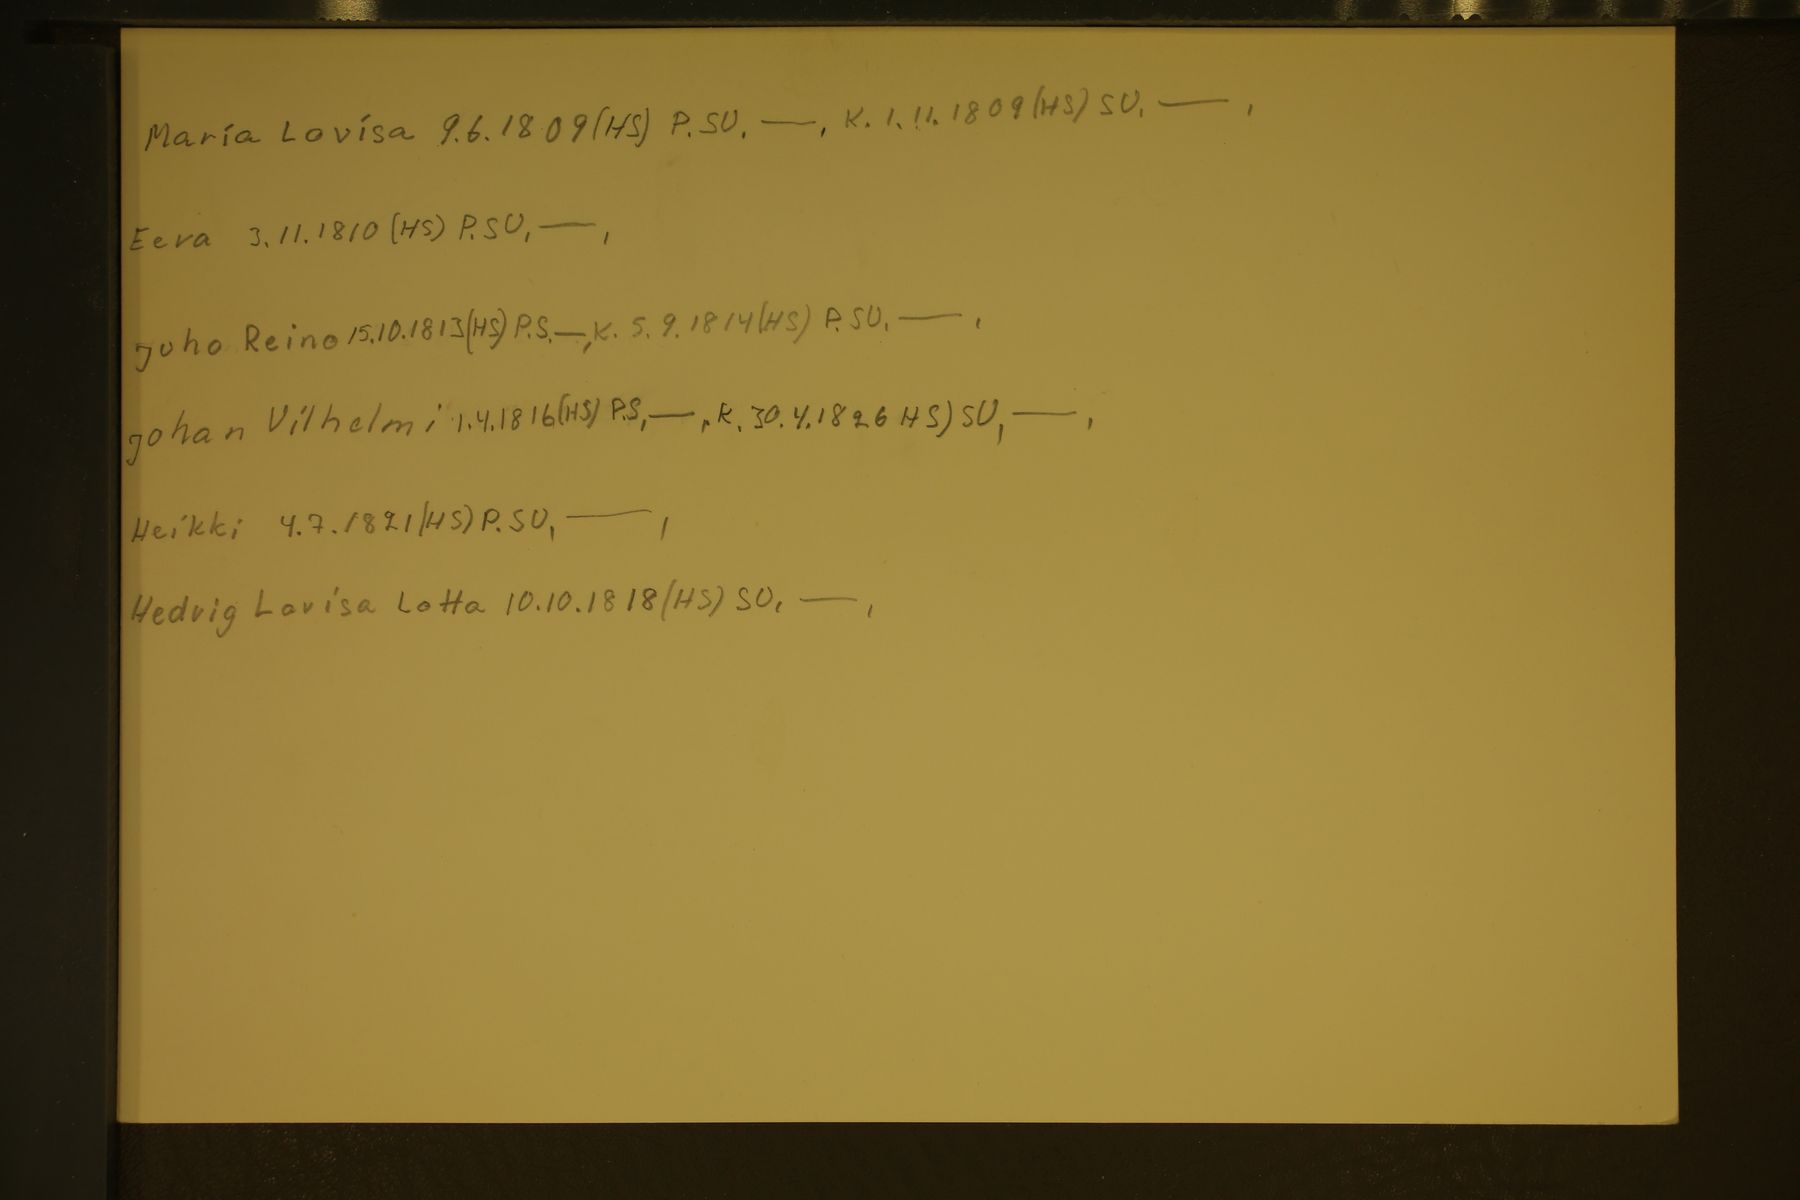 Maria Lovisa 9.6.1809(HS) P.SU. —, K. 1.11.1809(HS) SU, — ,
Eeva 3.11.1810(HS) P.SU, — ,
Juho Reino 15.10.1813(HS) P.S. —, K. 5.9.1814(HS) P.SU, — ,
Johan Vilhelmi 1.4.1816(HS) P.S, — , K. 30.4.1826 HS) SU, — ,
Heikki 4.7.1821(HS) P.SU, — ,
Hedvig Lovisa Lotta 10.10.1818(HS) SU, — ,